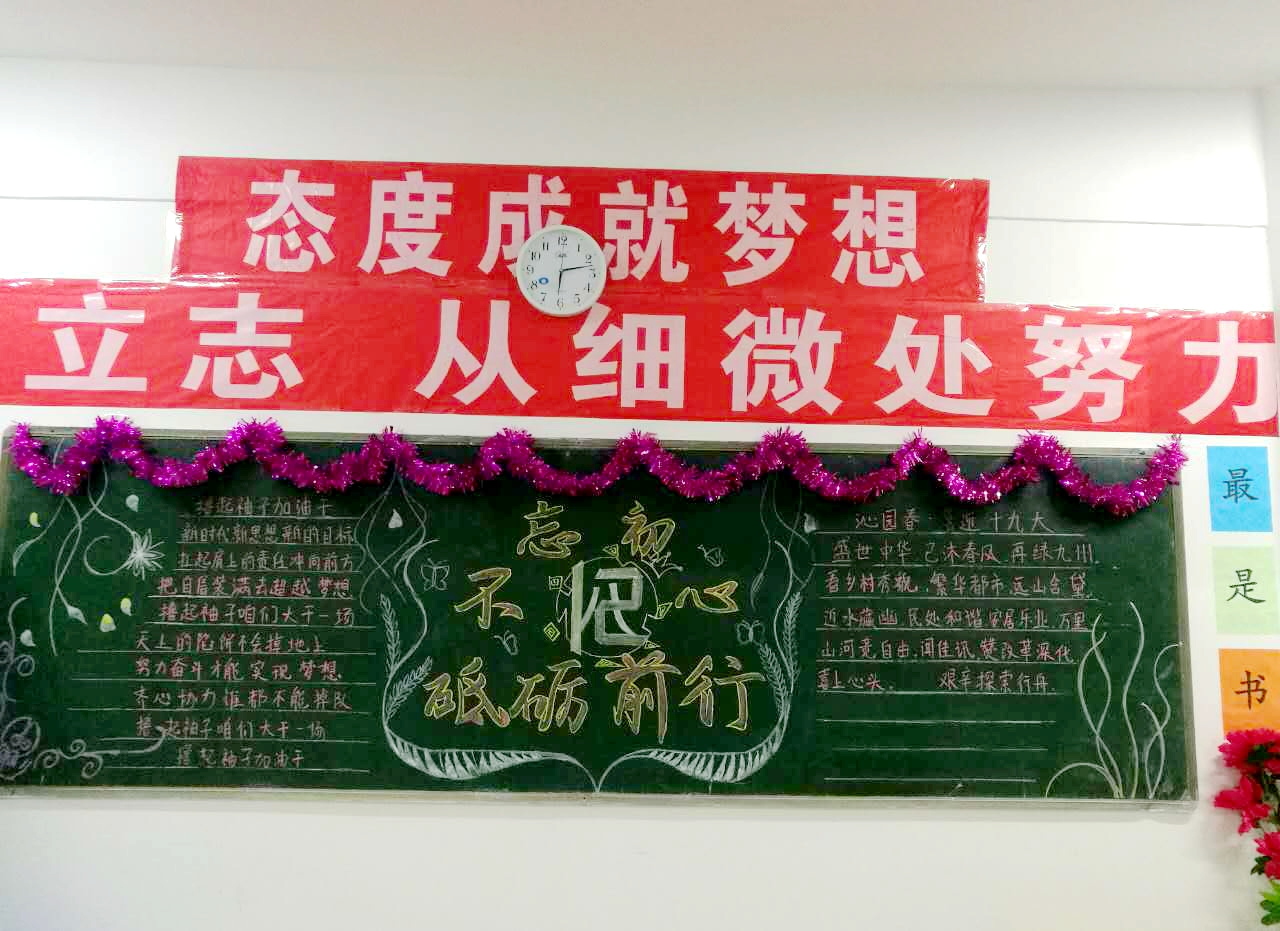 态度成就梦想
立志 从细微处努力
12
1
2
3
4
5
6
7
8
9
10
11
撸起袖子加油干
新时代新思想新的目标
立起肩上的责任冲向前方
把自信装满去超越梦想
撸起袖子咱们大干一场
天上的馅饼不会掉地上
努力奋斗才能实现梦想.
齐心协力谁都不能掉队
撸起袖子咱们大干一场
撸起袖子加油干
不忘初心
砥砺前行
沁园春·喜迎十九大
盛世中华,已沐春风,再绿九州.
看乡村秀貌,繁华都市,远山含黛,
近水蕴幽,民处和谐,安居乐业,万里
山河竞自由,闻佳讯,赞改革深化
喜上心头. 艰辛探索行舟.
最
是
书